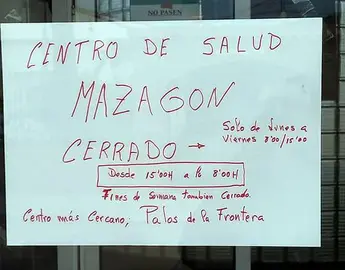 NO PASEN
CENTRO DE SALUD
MAZAGON
CERRADO →
Solo de Lunes a
Viernes 8'00/15'00
Desde 15'00H a las 8'00H
Fines de Semana tambien Cerrado
Centro más Cercano; Palos de la Frontera